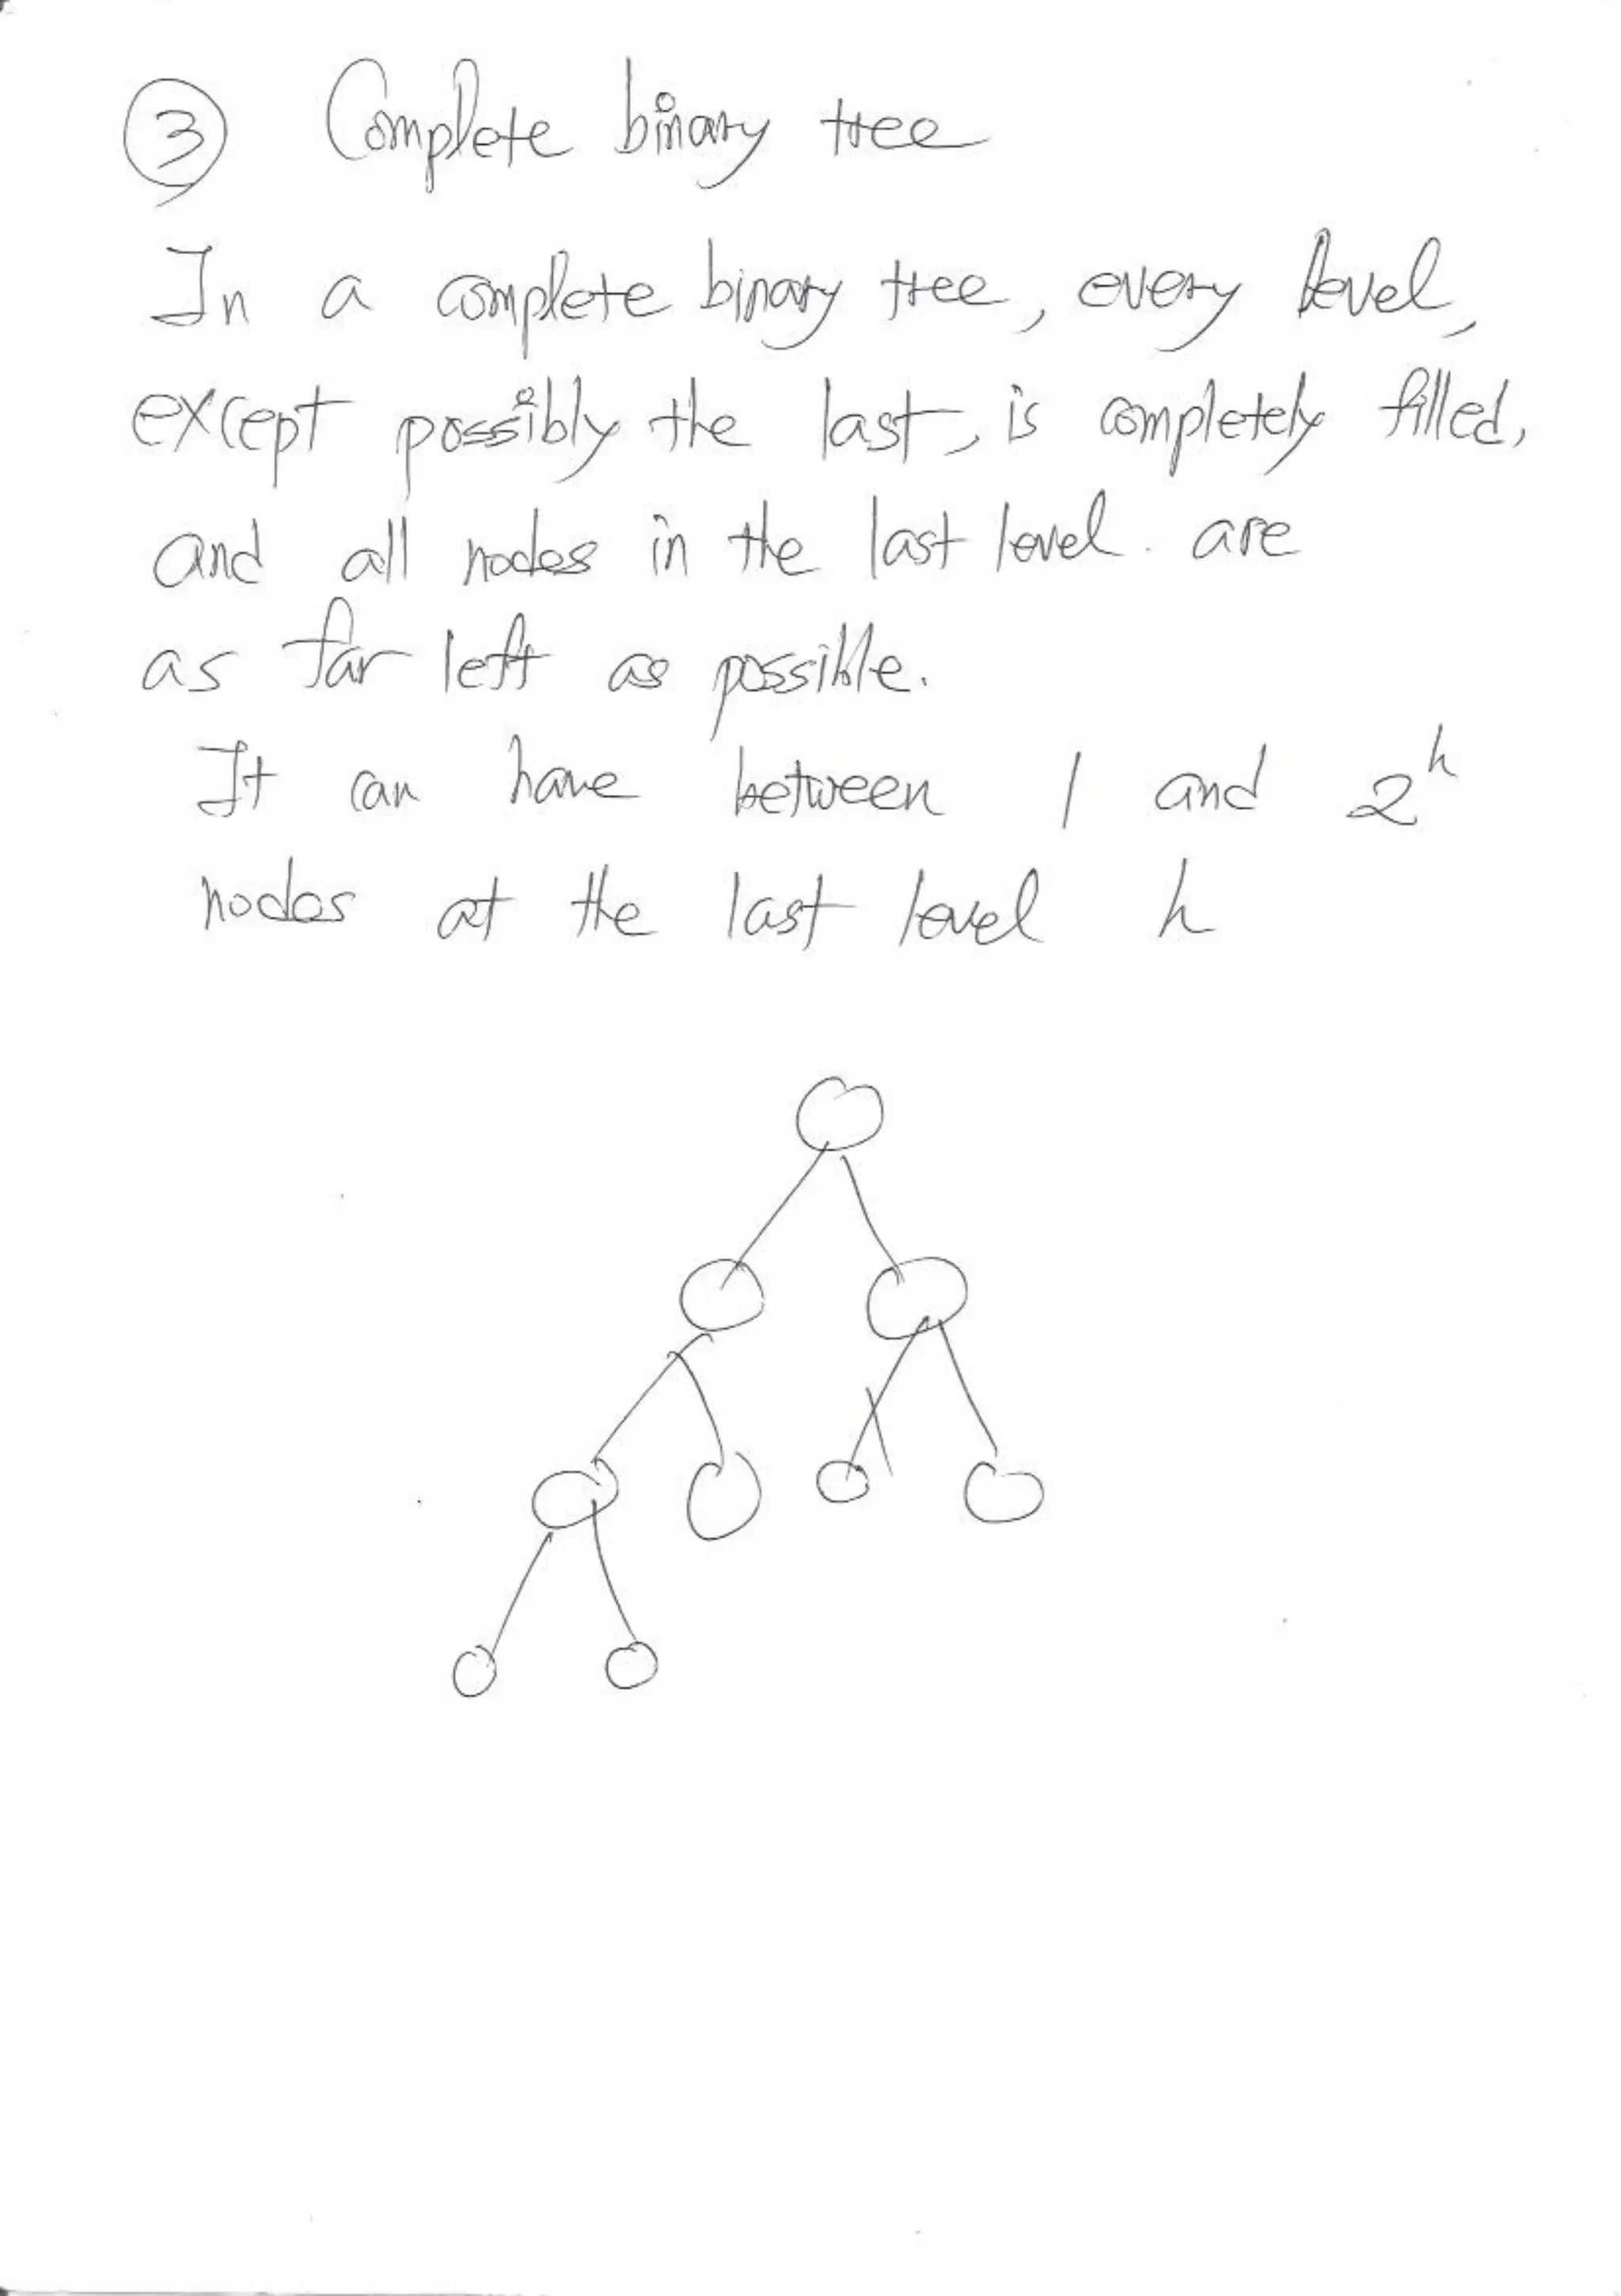 3 Complete binary tree
In a complete binary tree, every level,
except possibly the last, is completely filled,
and all nodes in the last level are
as far left as possible.
It can have between 1 and 2^h
nodes at the last level h